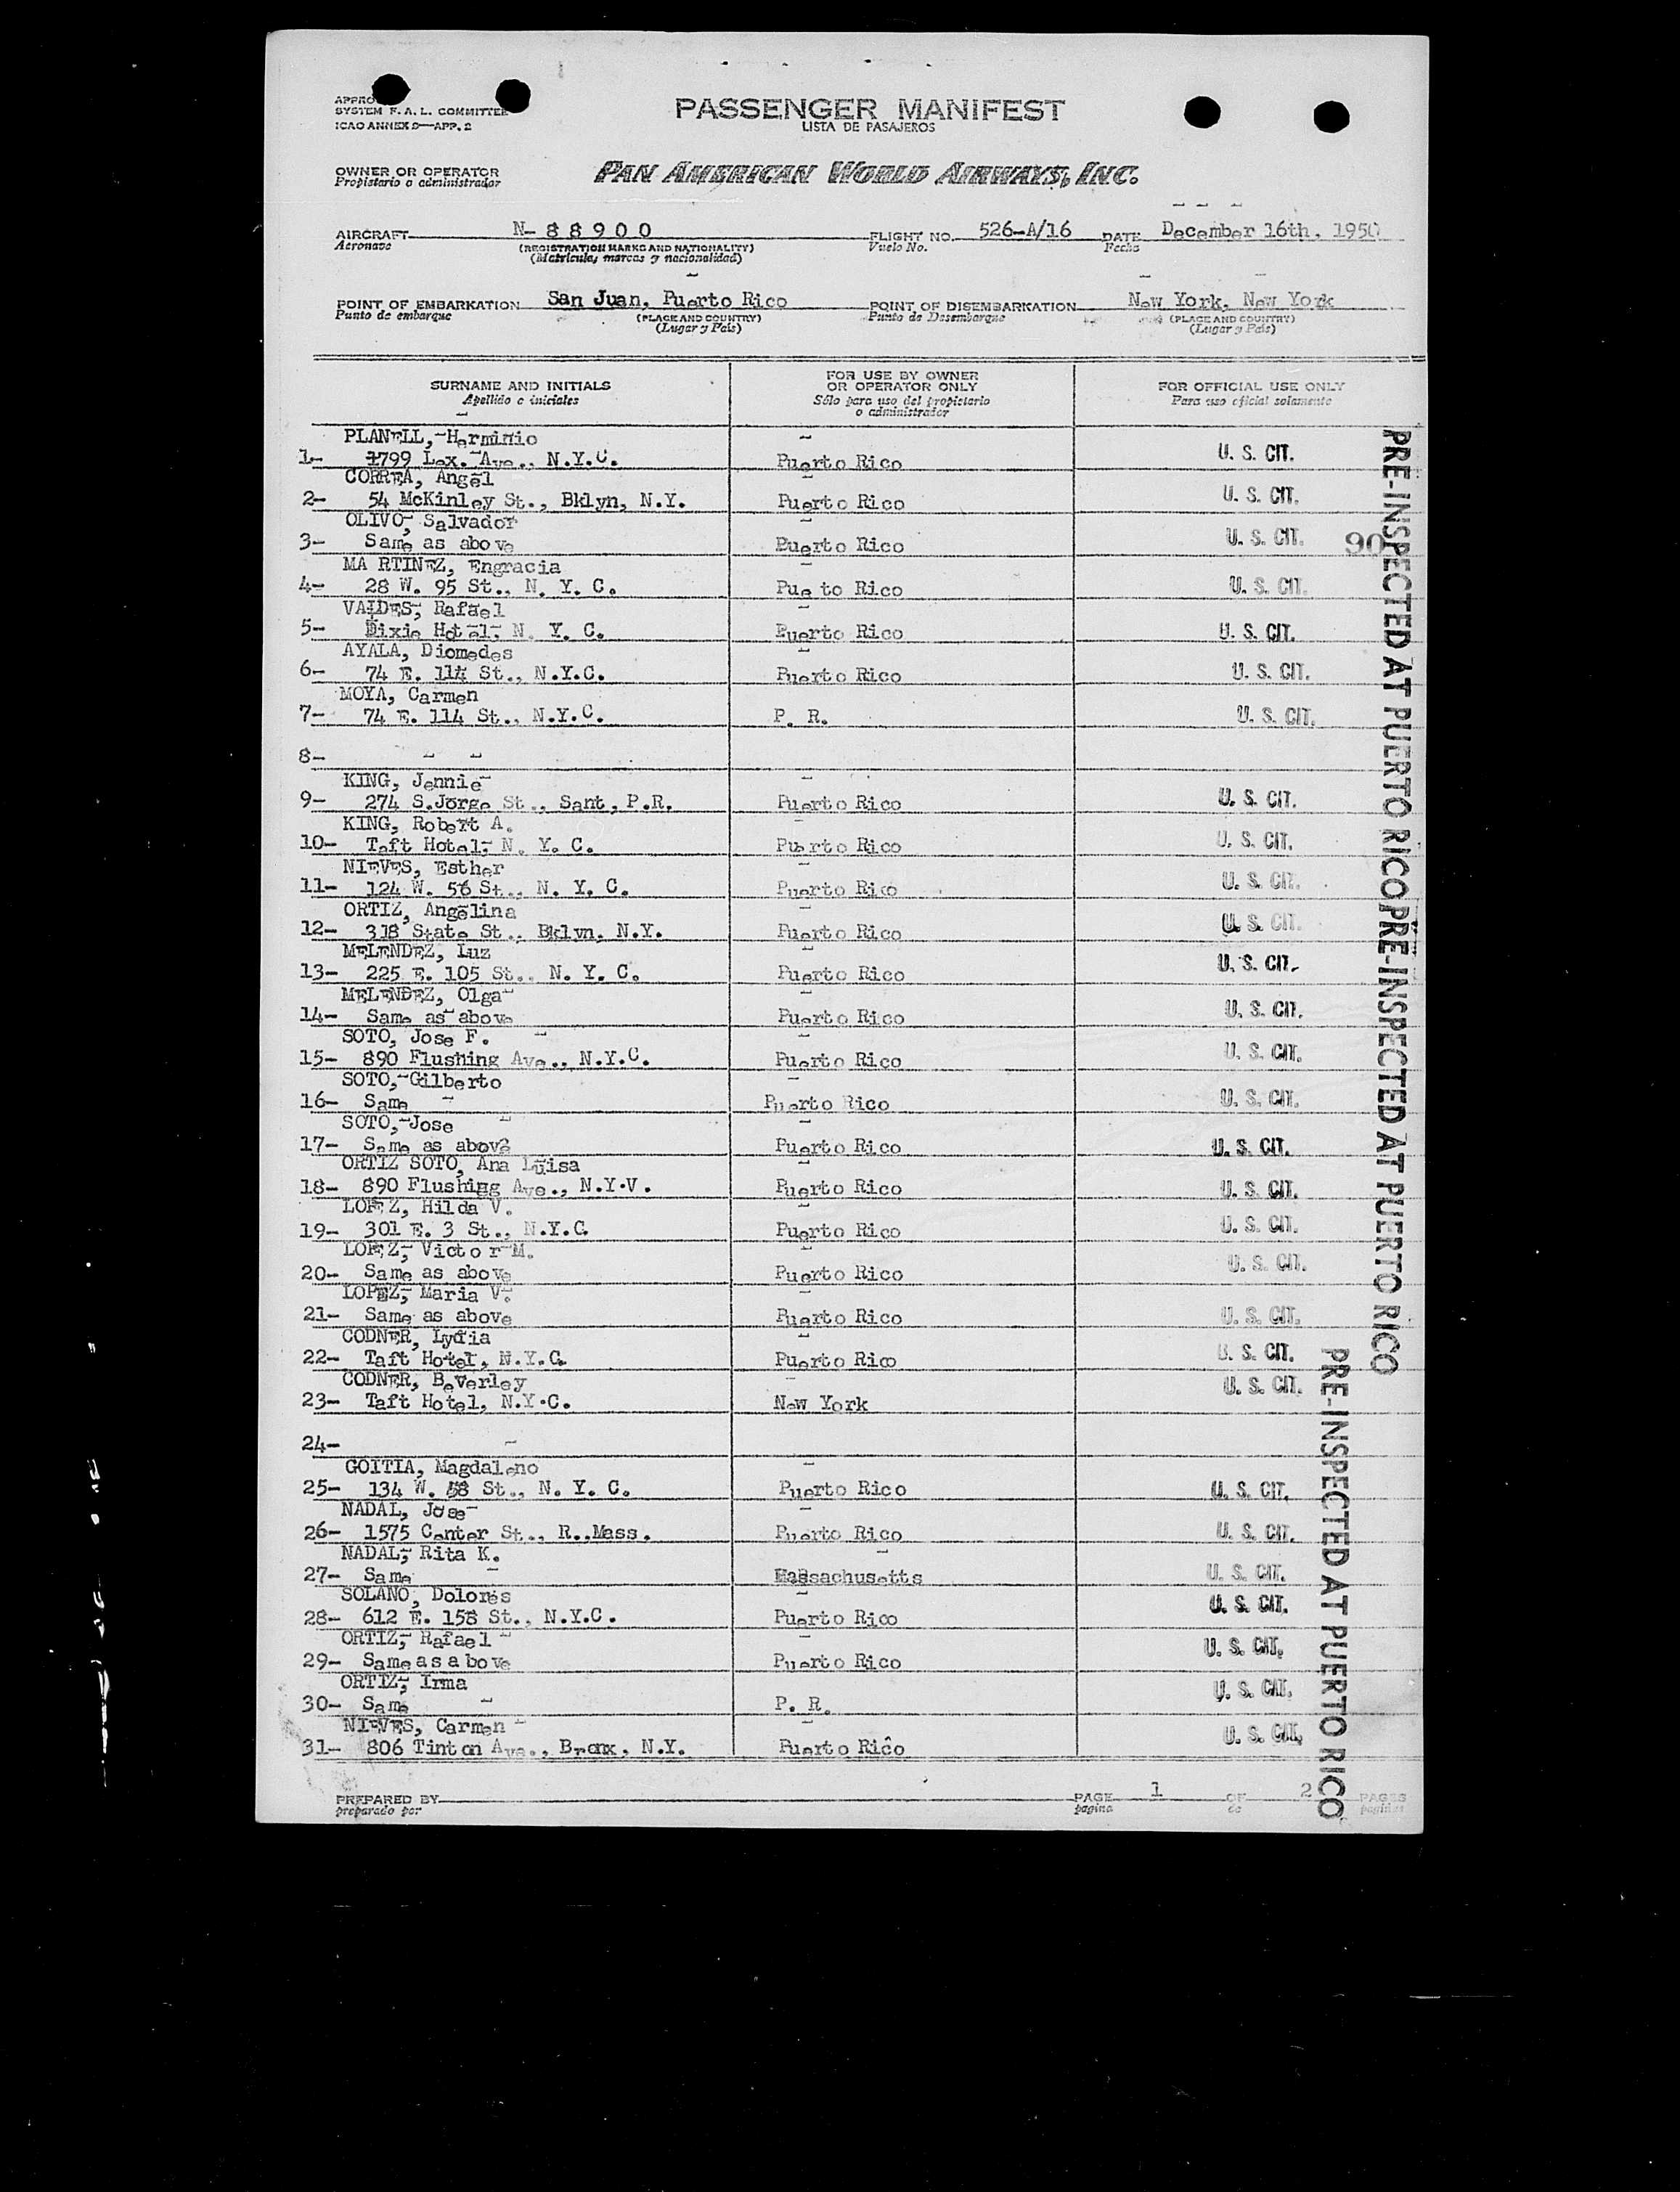 APPRO
SYSTEM F. A. L. COMMITTEE
ICAO ANNEX 9—APP. 2
PASSENGER MANIFEST
LISTA DE PASAJEROS
OWNER OR OPERATOR
Propietario o administrador
PAN AMERICAN WORLD AIRWAYS, INC.
AIRCRAFT N-88900 FLIGHT NO. 526-A/16 DATE December 16th, 1950
Aeronave (REGISTRATION MARKS AND NATIONALITY) Vuelo No. Fecha
(Matricula, marcas y nacionalidad)
POINT OF EMBARKATION San Juan, Puerto Rico POINT OF DISEMBARKATION New York, New York
Punto de embarque (PLACE AND COUNTRY) Punto de Desembarque (PLACE AND COUNTRY)
(Lugar y País) (Lugar y País)
SURNAME AND INITIALS
Apellido e iniciales
FOR USE BY OWNER
OR OPERATOR ONLY
Sólo para uso del propietario
o administrador
FOR OFFICIAL USE ONLY
Para uso oficial solamente
PLANELL, Herminio
1- 1799 Lex. Ave., N.Y.C. Puerto Rico U. S. CIT.
CORREA, Angel
2- 54 McKinley St., Bklyn, N.Y. Puerto Rico U. S. CIT.
OLIVO, Salvador
3- Same as above Puerto Rico U. S. CIT. 90
MA RTINEZ, Engracia
4- 28 W. 95 St., N. Y. C. Pue to Rico U. S. CIT.
VALDES, Rafael
5- Dixie Hotel, N. Y. C. Puerto Rico U. S. CIT.
AYALA, Diomedes
6- 74 E. 114 St., N.Y.C. Puerto Rico U. S. CIT.
MOYA, Carmen
7- 74 E. 114 St., N.Y.C. P. R. U. S. CIT.
8-
KING, Jennie
9- 274 S.Jorge St., Sant, P.R. Puerto Rico U. S. CIT.
KING, Robert A.
10- Taft Hotel, N. Y. C. Puerto Rico U. S. CIT.
NIEVES, Esther
11- 124 W. 56 St., N. Y. C. Puerto Rico U. S. CIT.
ORTIZ, Angelina
12- 318 State St., Bklyn, N.Y. Puerto Rico U. S. CIT.
MELENDEZ, Luz
13- 225 E. 105 St., N. Y. C. Puerto Rico U. S. CIT.
MELENDEZ, Olga
14- Same as above Puerto Rico U. S. CIT.
SOTO, Jose F.
15- 890 Flushing Ave., N.Y.C. Puerto Rico U. S. CIT.
SOTO, Gilberto
16- Same Puerto Rico U. S. CIT.
SOTO, Jose
17- Same as above Puerto Rico U. S. CIT.
ORTIZ SOTO, Ana Luisa
18- 890 Flushing Ave., N.Y.V. Puerto Rico U. S. CIT.
LOPEZ, Hilda V.
19- 301 E. 3 St., N.Y.C. Puerto Rico U. S. CIT.
LOPEZ, Victor M.
20- Same as above Puerto Rico U. S. CIT.
LOPEZ, Maria V.
21- Same as above Puerto Rico U. S. CIT.
CODNER, Lydia
22- Taft Hotel, N.Y.C. Puerto Rico U. S. CIT.
CODNER, Beverley
23- Taft Hotel, N.Y.C. New York U. S. CIT.
24-
GOITIA, Magdaleno
25- 134 W. 58 St., N. Y. C. Puerto Rico U. S. CIT.
NADAL, Jose
26- 1575 Center St., R.,Mass. Puerto Rico U. S. CIT.
NADAL, Rita K.
27- Same Massachusetts U. S. CIT.
SOLANO, Dolores
28- 612 E. 158 St., N.Y.C. Puerto Rico U. S. CIT.
ORTIZ, Rafael
29- Same as above Puerto Rico U. S. CIT.
ORTIZ, Irma
30- Same P. R. U. S. CIT.
NIEVES, Carmen
31- 806 Tinton Ave., Bronx, N.Y. Puerto Rico U. S. CIT.
PRE-INSPECTED AT PUERTO RICO
PRE-INSPECTED AT PUERTO RICO
PRE-INSPECTED AT PUERTO RICO
PREPARED BY PAGE 1 OF 2 PAGES
preparado por pagina de paginas